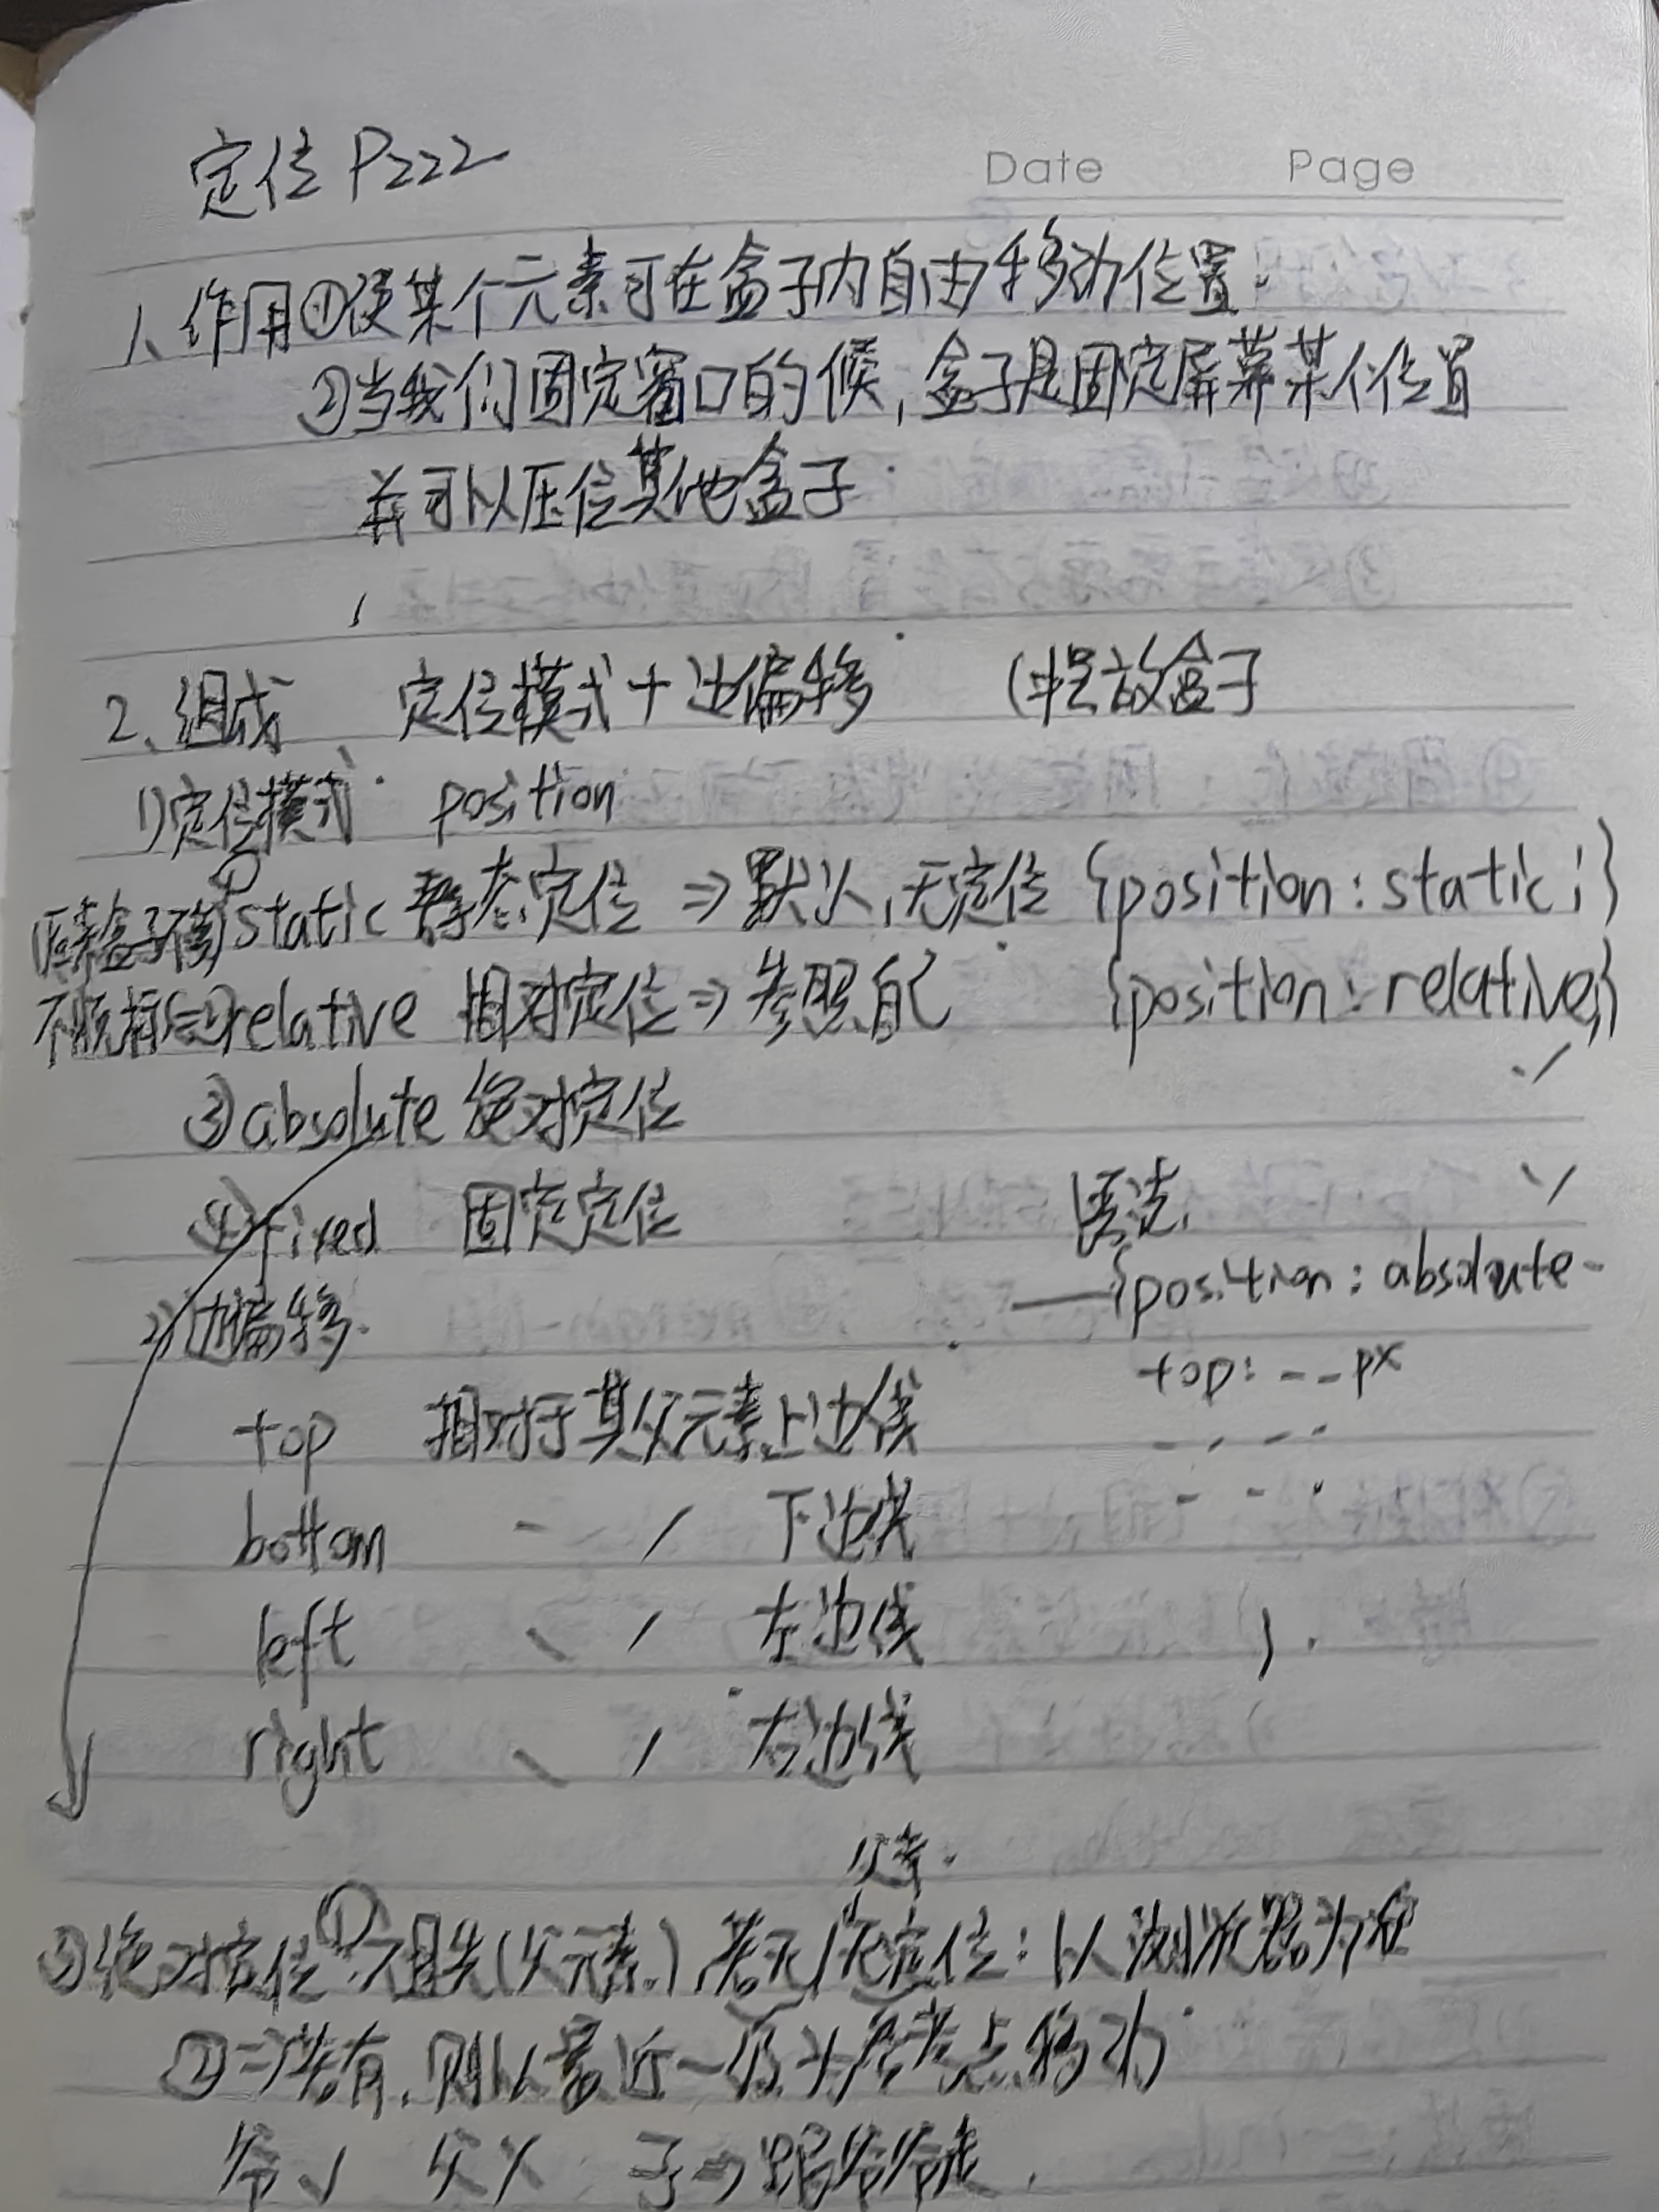 定位 P222
Date Page
1、作用①使某个元素可在盒子内自由移动位置.
②当我们固定窗口的候,盒子是固定屏幕某个位置
并可以压位其他盒子
2、组成 定位模式 + 边偏移 (摆放盒子
1)定位模式 position
①static 静态定位 ⇒ 默认,无定位 {position: static;}
不脱标⇐②relative 相对定位 ⇒ 参照自己 {position: relative;}
③absolute 绝对定位
④fixed 固定定位 语法
2)边偏移 {position: absolute
top: ---px
top 相对于其父元素上边线
bottom 下边线
left 左边线 }
right 右边线
③绝对定位 ① 祖先(父元素)若无/无定位: 以浏览器为准
② ⇒若有,则以最近一级为参考点移动
爷√ 父× 子→跟爷爷走